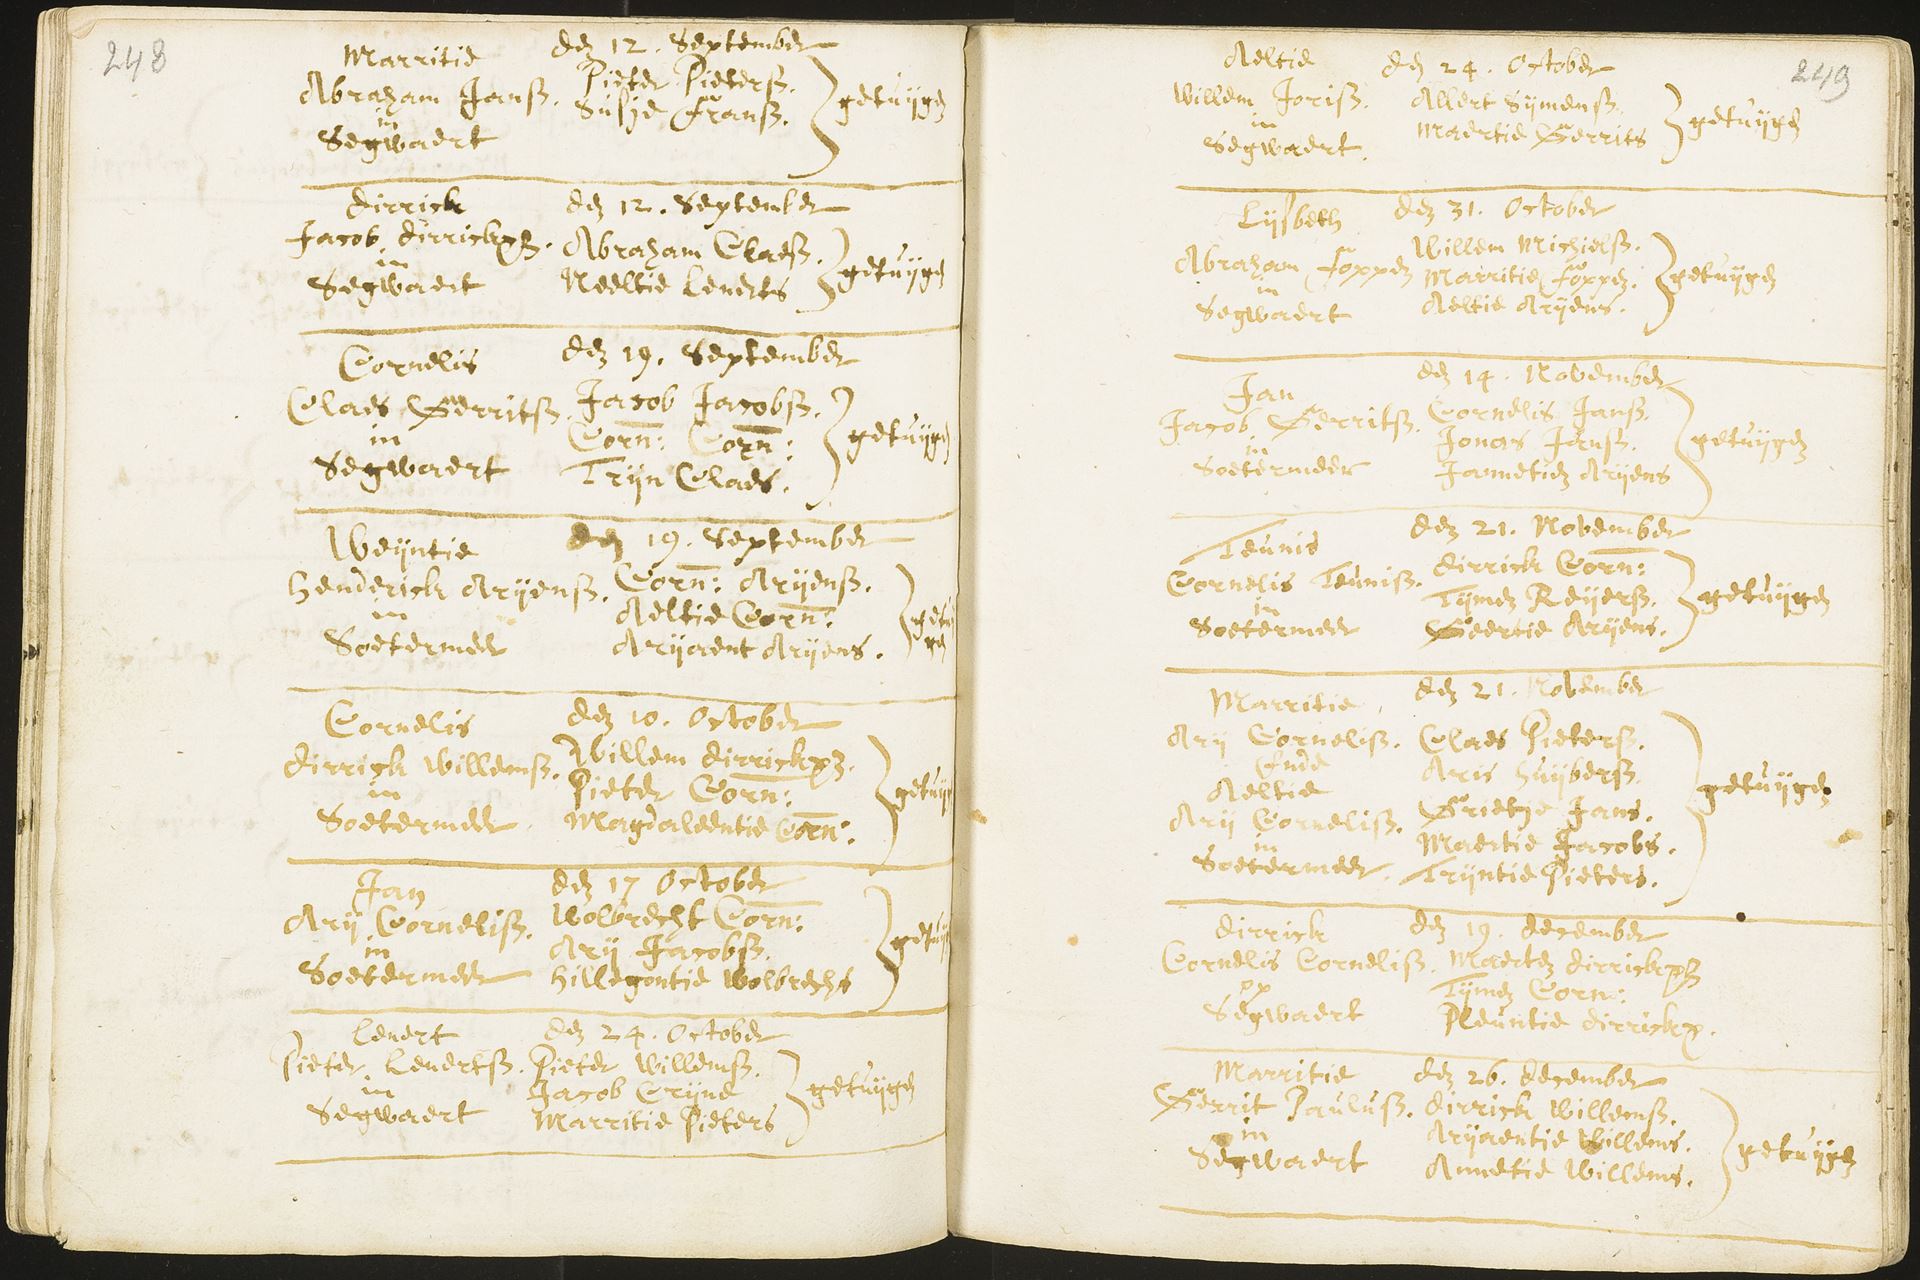 248
Marritie
Abraham Jansz.
in
Segwaert
den 12. September
Pieter Pietersz.
Susje Fransz.
getuijgen
Dirrick
Jacob Dirrickxz.
in
Segwaert
den 12. September
Abraham Claesz.
Neeltie Lenerts
getuijgen
Cornelis
Claes Gerritsz.
in
Segwaert
den 19. September
Jacob Jacobsz.
Corn: Corn:
Trijn Claes.
getuijgen
Weijntie
Henderick Arijensz.
in
Soetermeer
den 19. September
Corn: Arijensz.
Aeltie Corn:
Arijaent Arijens.
getuij
gen
Cornelis
Dirrick Willemsz.
in
Soetermeer
den 10. October
Willem Dirrickxz.
Pieter Corn:
Magdaleentie Corn:
getuijg
Jan
Arij Cornelisz.
in
Soetermeer
den 17 October
Wolbrecht Corn:
Arij Jacobsz.
Hillegontie Wolbrechs
getuijg
Lenert
Pieter Lenertsz.
in
Segwaert
den 24. October
Pieter Willemsz.
Jacob Crijne
Marritie Pieters
getuijgen
249
Aeltie
Willem Jorisz.
in
Segwaert.
den 24. October
Allert Sijmensz.
Maertie Gerrits
getuijgen
Lijsbeth
Abraham Foppen
in
Segwaert
den 31. October
Willem Michielsz.
Marritie Foppen.
Aeltie Arijens.
getuijgen
Jan
Jacob Gerritsz.
in
Soetermeer
den 14. November
Cornelis Jansz.
Jonas Jansz.
Jannetien Arijens
getuijgen
Teunis
Cornelis Teunisz.
in
Soetermeer
den 21. November
Dirrick Corn:
Tijmen Reijersz.
Geertie Arijens.
getuijgen
Marritie
Arij Cornelisz.
Ende
Aeltie
Arij Cornelisz.
in
Soetermeer.
den 21. November
Claes Pietersz.
Aris Huijbersz.
Grietje Jans.
Maertie Jacobs.
Trijntie Pieters.
getuijgen
Dirrick
Cornelis Cornelisz.
Segwaert
den 19. December
Maerten Dirrickxz
Tijmen Corn:
Pleuntie Dirrickx.
Marritie
Gerrit Paulusz.
in
Segwaert
den 26. December
Dirrick Willemsz.
Arijaentie Willems.
Annetie Willems.
getuijgen